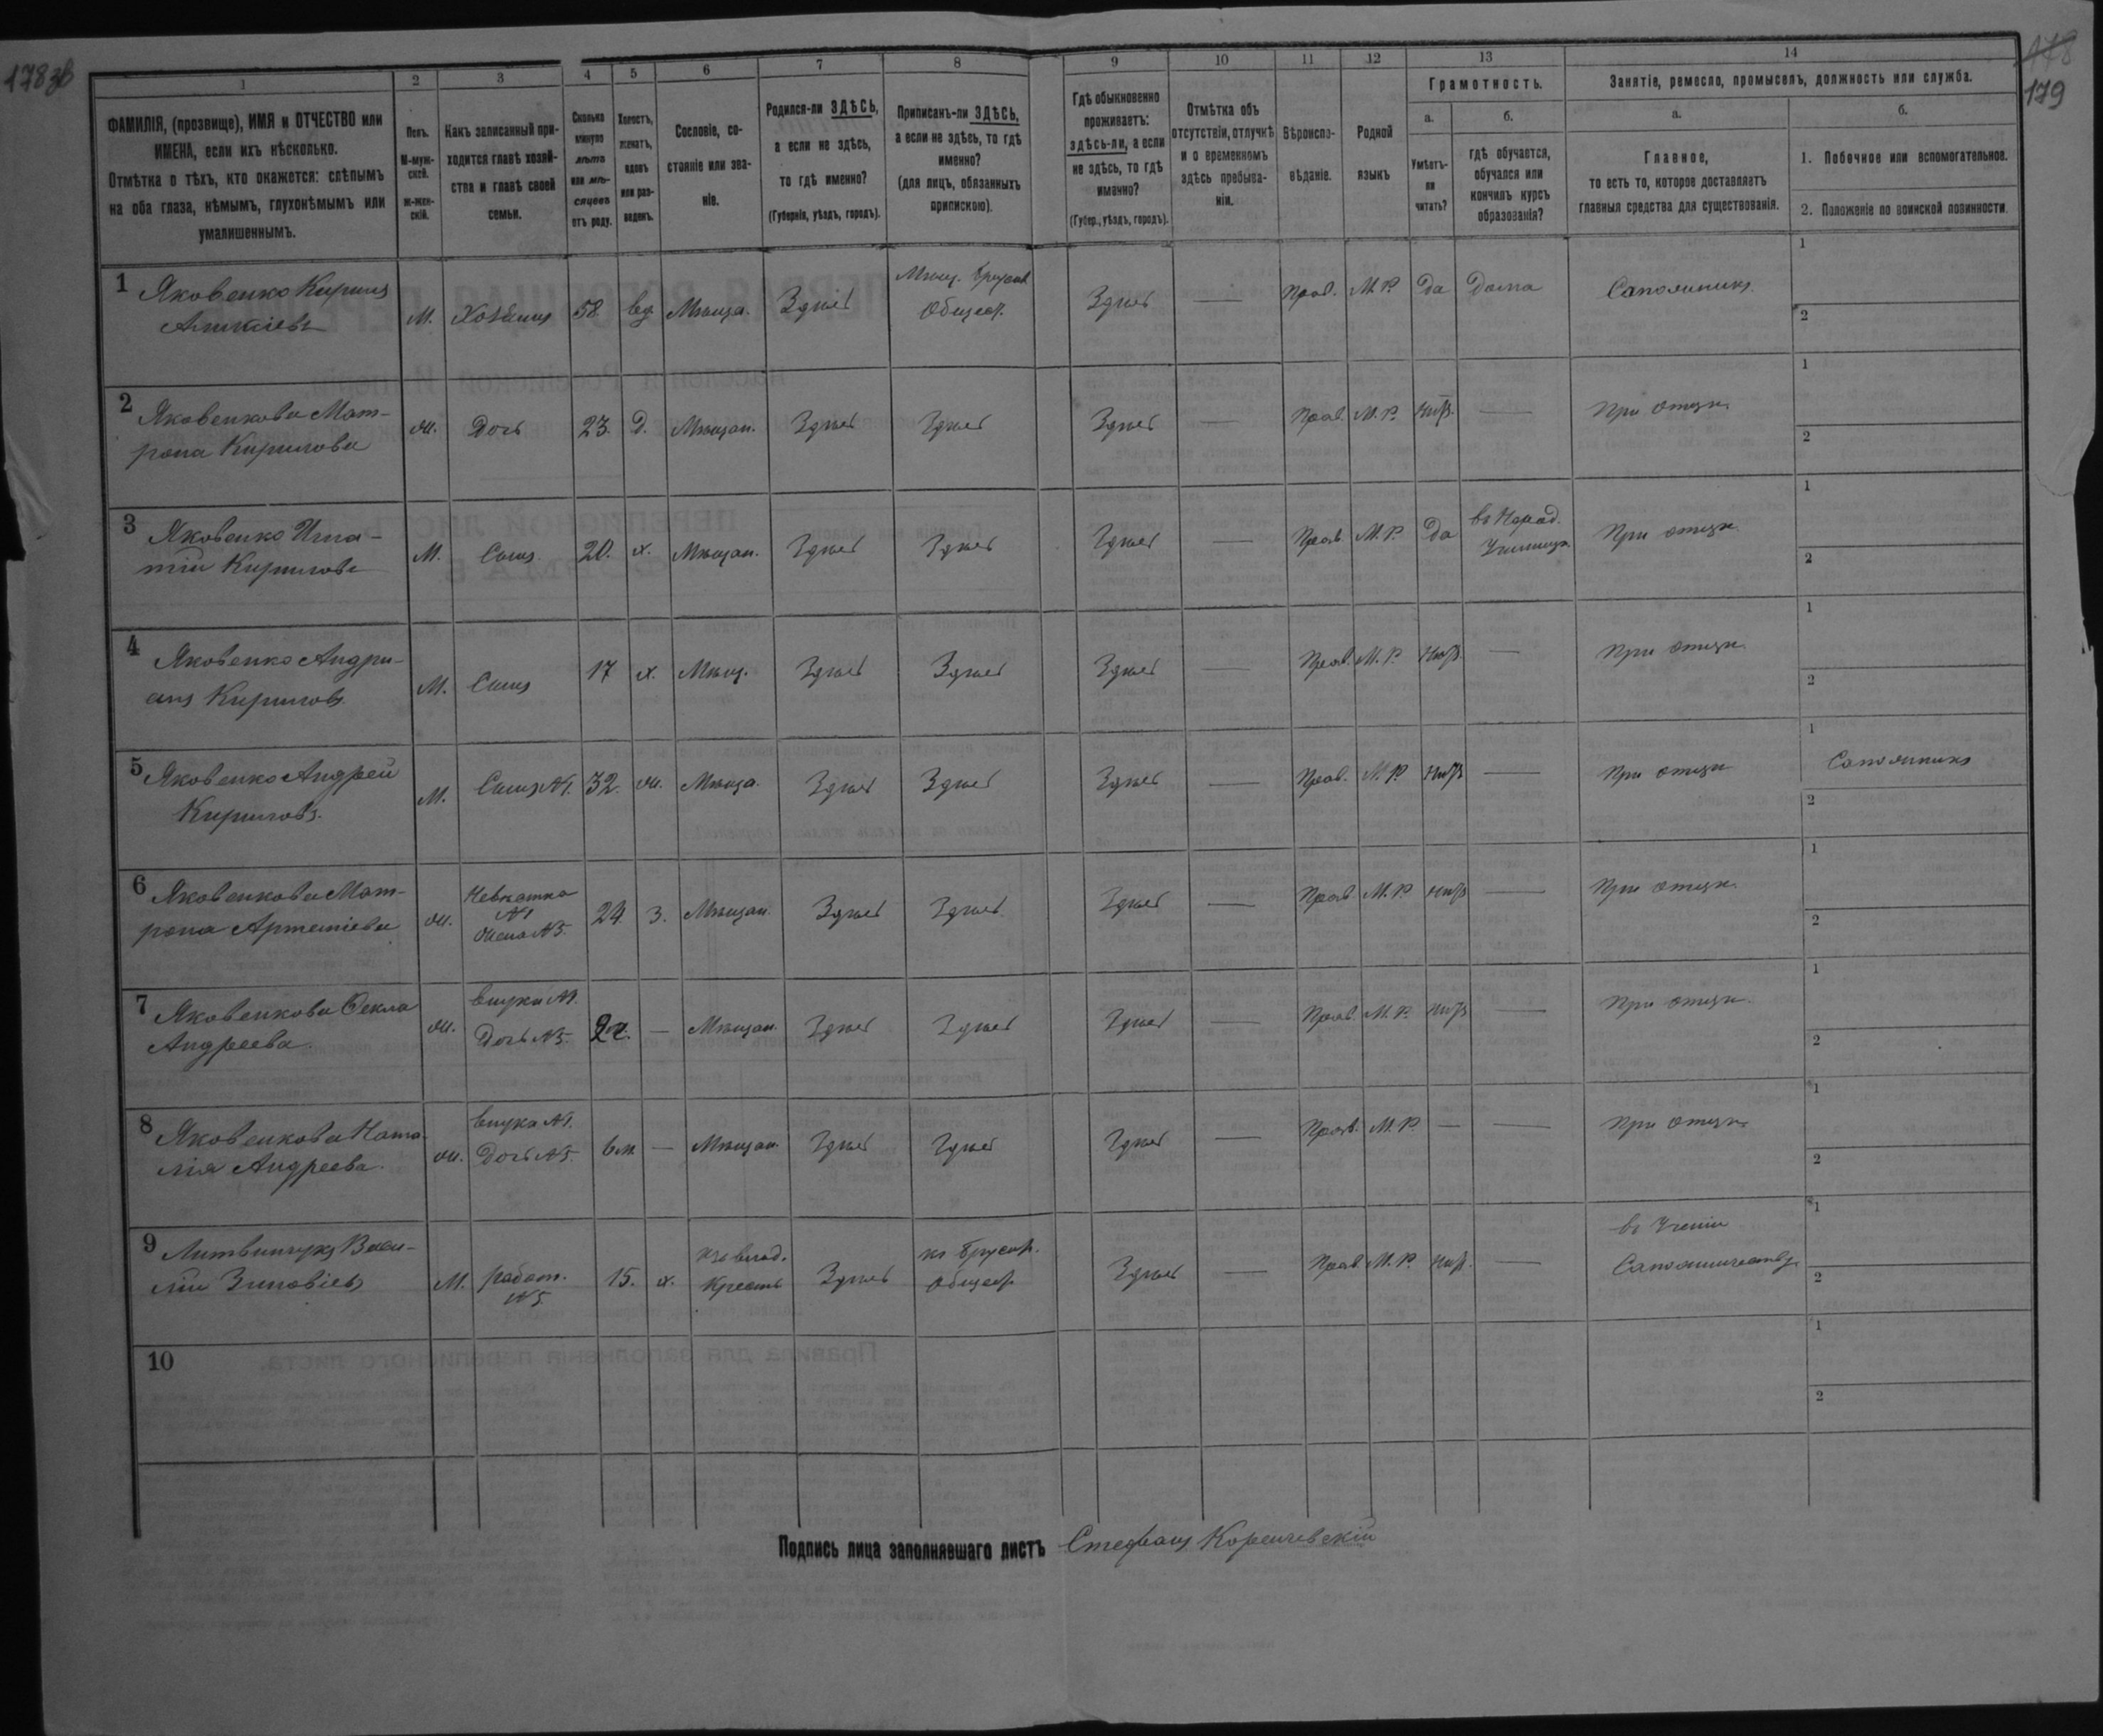 178 зв
178
179
1
2
3
4
5
6
7
8
9
10
11
12
13
14
ФАМИЛІЯ, (прозвище), ИМЯ и ОТЧЕСТВО или
ИМЕНА, если ихъ нѣсколько.
Отмѣтка о тѣхъ, кто окажется: слѣпымъ
на оба глаза, нѣмымъ, глухонѣмымъ или
умалишеннымъ.
Полъ.
М-муж-
ской.
ж-жен-
скій.
Какъ записанный при-
ходится главѣ хозяй-
ства и главѣ своей
семьи.
Сколько
минуло
лѣтъ
или мѣ-
сяцевъ
отъ роду.
Холостъ,
женатъ,
вдовъ
или раз-
веденъ.
Сословіе, со-
стояніе или зва-
ніе.
Родился-ли ЗДѢСЬ,
а если не здѣсь,
то гдѣ именно?
(Губернія, уѣздъ, городъ).
Приписанъ-ли ЗДѢСЬ,
а если не здѣсь, то гдѣ
именно?
(для лицъ, обязанныхъ
припискою).
Гдѣ обыкновенно
проживаетъ:
здѣсь-ли, а если
не здѣсь, то гдѣ
именно?
(Губер., уѣздъ, городъ).
Отмѣтка объ
отсутствіи, отлучкѣ
и о временномъ
здѣсь пребыва-
ніи.
Вѣроиспо-
вѣданіе.
Родной
языкъ
Грамотность.
а.
Умѣетъ-
ли
читать?
б.
гдѣ обучается,
обучался или
кончилъ курсъ
образованія?
Занятіе, ремесло, промыселъ, должность или служба.
а.
Главное,
то есть то, которое доставляетъ
главныя средства для существованія.
б.
1. Побочное или вспомогательное.
2. Положеніе по воинской повинности.
1 Яковенко Кирилъ
М. Хозяинъ 58. вд. Мѣща. Здѣсь Мѣщ. Общест. Здѣсь — Прав. М.Р. Да Дома Сапожникъ
1
2
2 Яковенкова Мат-
рона Кирилова
ж. Дочь 23. Д. Мѣщан. Здѣсь Здѣсь Здѣсь — Прав. М.Р. нѣтъ. — При отцѣ.
1
2
3 Яковенко Игна-
тій Кириловъ
М. Сынъ. 20. х. Мѣщан. Здѣсь Здѣсь Здѣсь — Прав. М.Р. Да въ Народ.
Училищѣ При отцѣ
1
2
4 Яковенко Андрі-
анъ Кириловъ
М. Сынъ 17 х. Мѣщ. Здѣсь Здѣсь Здѣсь — Прав. М.Р. Нѣтъ. — При отцѣ.
1
2
5 Яковенко Андрей
Кириловъ.
М. Сынъ №1. 32. ж. Мѣща. Здѣсь Здѣсь Здѣсь — Прав. М.Р. Нѣтъ — При отцѣ
1 Сапожникъ
2
6 Яковенкова Мат-
рона Артеміева
ж. Невѣстка
№1
Жена №5. 24. З. Мѣщан. Здѣсь Здѣсь Здѣсь — Прав. М.Р. Нѣтъ — При отцѣ.
1
2
7 Яковенкова Ѳекла
Андреева.
ж. Внука №1.
Дочь №5. — Мѣщан. Здѣсь Здѣсь Здѣсь — Прав. М.Р. Нѣтъ — При отцѣ.
1
2
8 Яковенкова Ната-
лія Андреева.
ж. Внука №1.
Дочь №5. 6 м. — Мѣщан. Здѣсь Здѣсь Здѣсь — Прав. М.Р. — — При отцѣ.
1
2
9 Литвинчукъ Васи-
лій Зиновіевъ
М. работ.
№5. 15. х. изъ влад.
Кресть. Здѣсь Общест. Здѣсь — Прав. М.Р. Нѣт. — въ Ученіи
Сапожничеству
1
2
10
1
2
Подпись лица заполнявшаго листъ Стефанъ Кореневскій